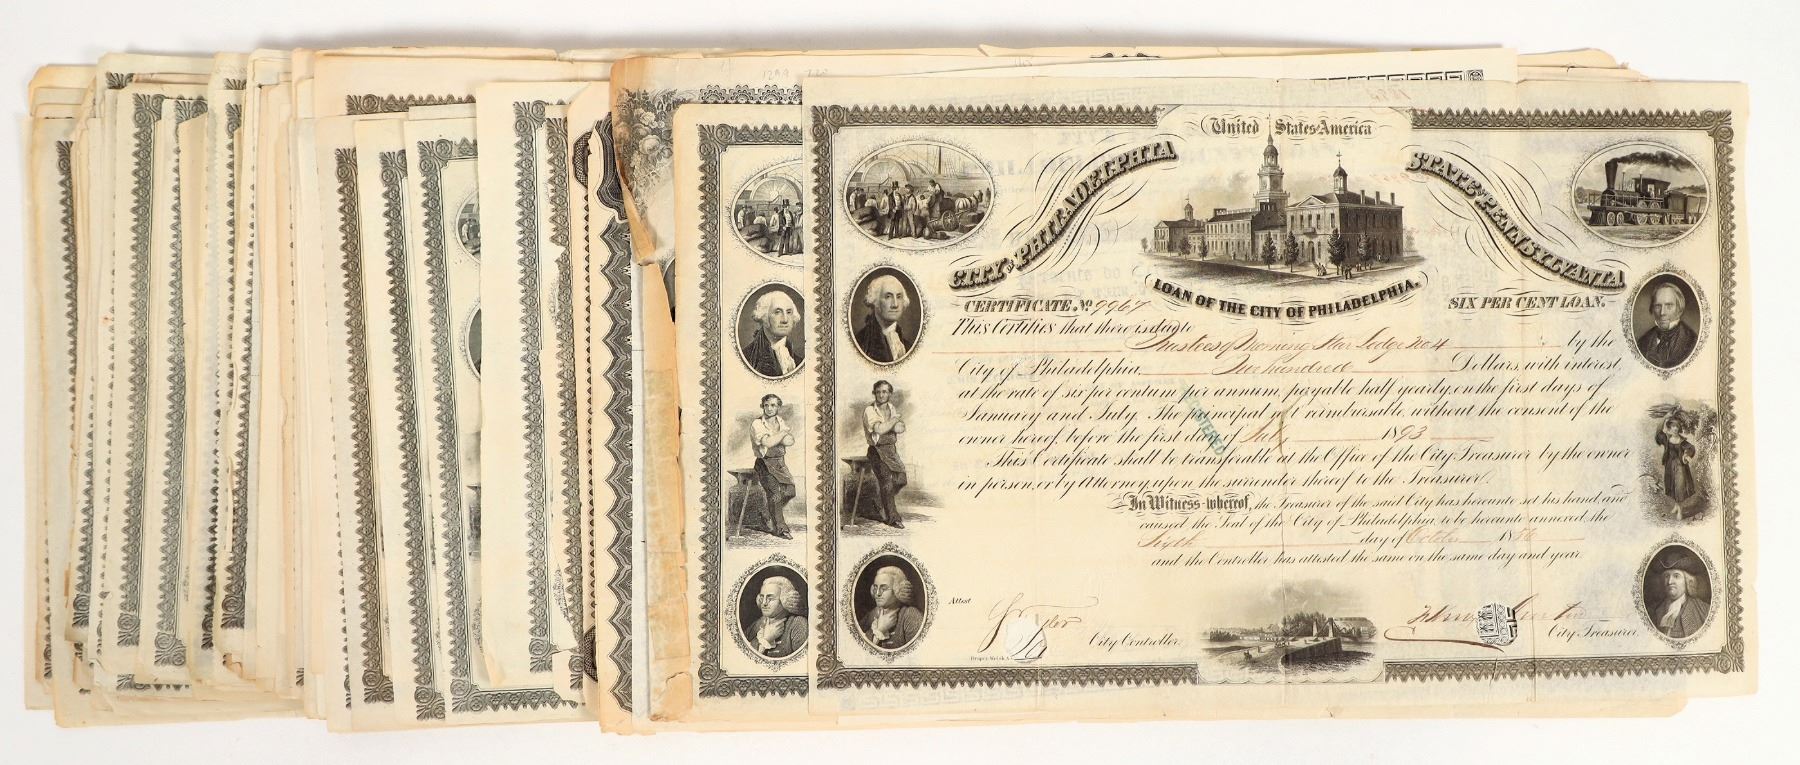 United States America
CITY OF PHILADELPHIA
STATE OF PENNSYLVANIA
LOAN OF THE CITY OF PHILADELPHIA.
CERTIFICATE No. 9967
SIX PER CENT LOAN.
This Certifies that there is due to
Trustees of Morning Star Lodge No 4 by the
City of Philadelphia, Dollars, with interest
at the rate of six per centum per annum, payable half yearly, on the first days of
January and July. The principal not reimbursable, without the consent of the
owner hereof, before the first day of July 1893
This Certificate shall be transferable at the Office of the City Treasurer by the owner
in person, or by Attorney, upon the surrender thereof to the Treasurer.
In Witness whereof, the Treasurer of the said City has hereunto set his hand, and
caused the Seal of the City of Philadelphia to be hereunto annexed, the
Sixth day of October 1856
and the Controller has attested the same on the same day and year.
Attest
City Controller.
City Treasurer.